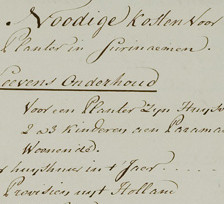 Noodige Kosten Voor
Planter in Surinaemen.
Leevens Onderhoud
Voor een Planter Zyn Huys
2 a 3 kinderen aen Parama
Woonende.
huyshuur in't Jaar
Provisien uyt Holland